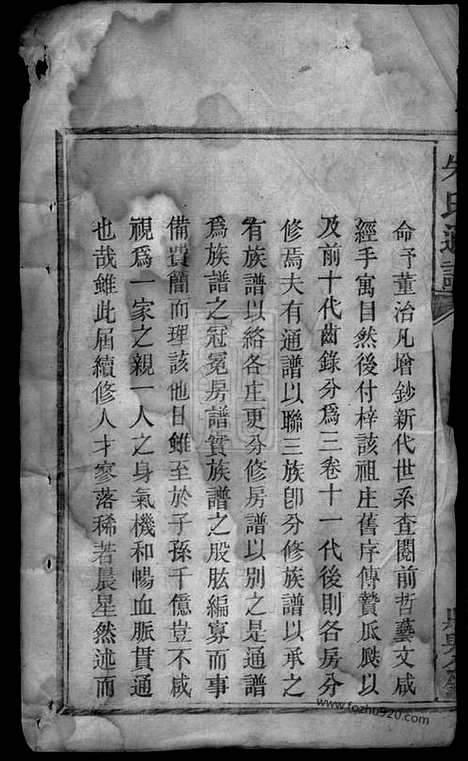 命予董治凡增鈔新代世系查閱前哲藝文咸
經手寓目然後付梓該祖庄舊序傳贊瓜瓞以
及前十代齒錄分爲三卷十一代後則各房分
修焉夫有通譜以聯三族卽分修族譜以承之
有族譜以絡各庄更分修房譜以別之是通譜
爲族譜之冠冕房譜實族譜之股肱編寡而事
備費簡而理該他日雖至於子孫千億豈不咸
視爲一家之親一人之身氣機和暢血脈貫通
也哉雖此屆續修人才寥落稀若晨星然述而
氏通譜
www.fozhu920.com